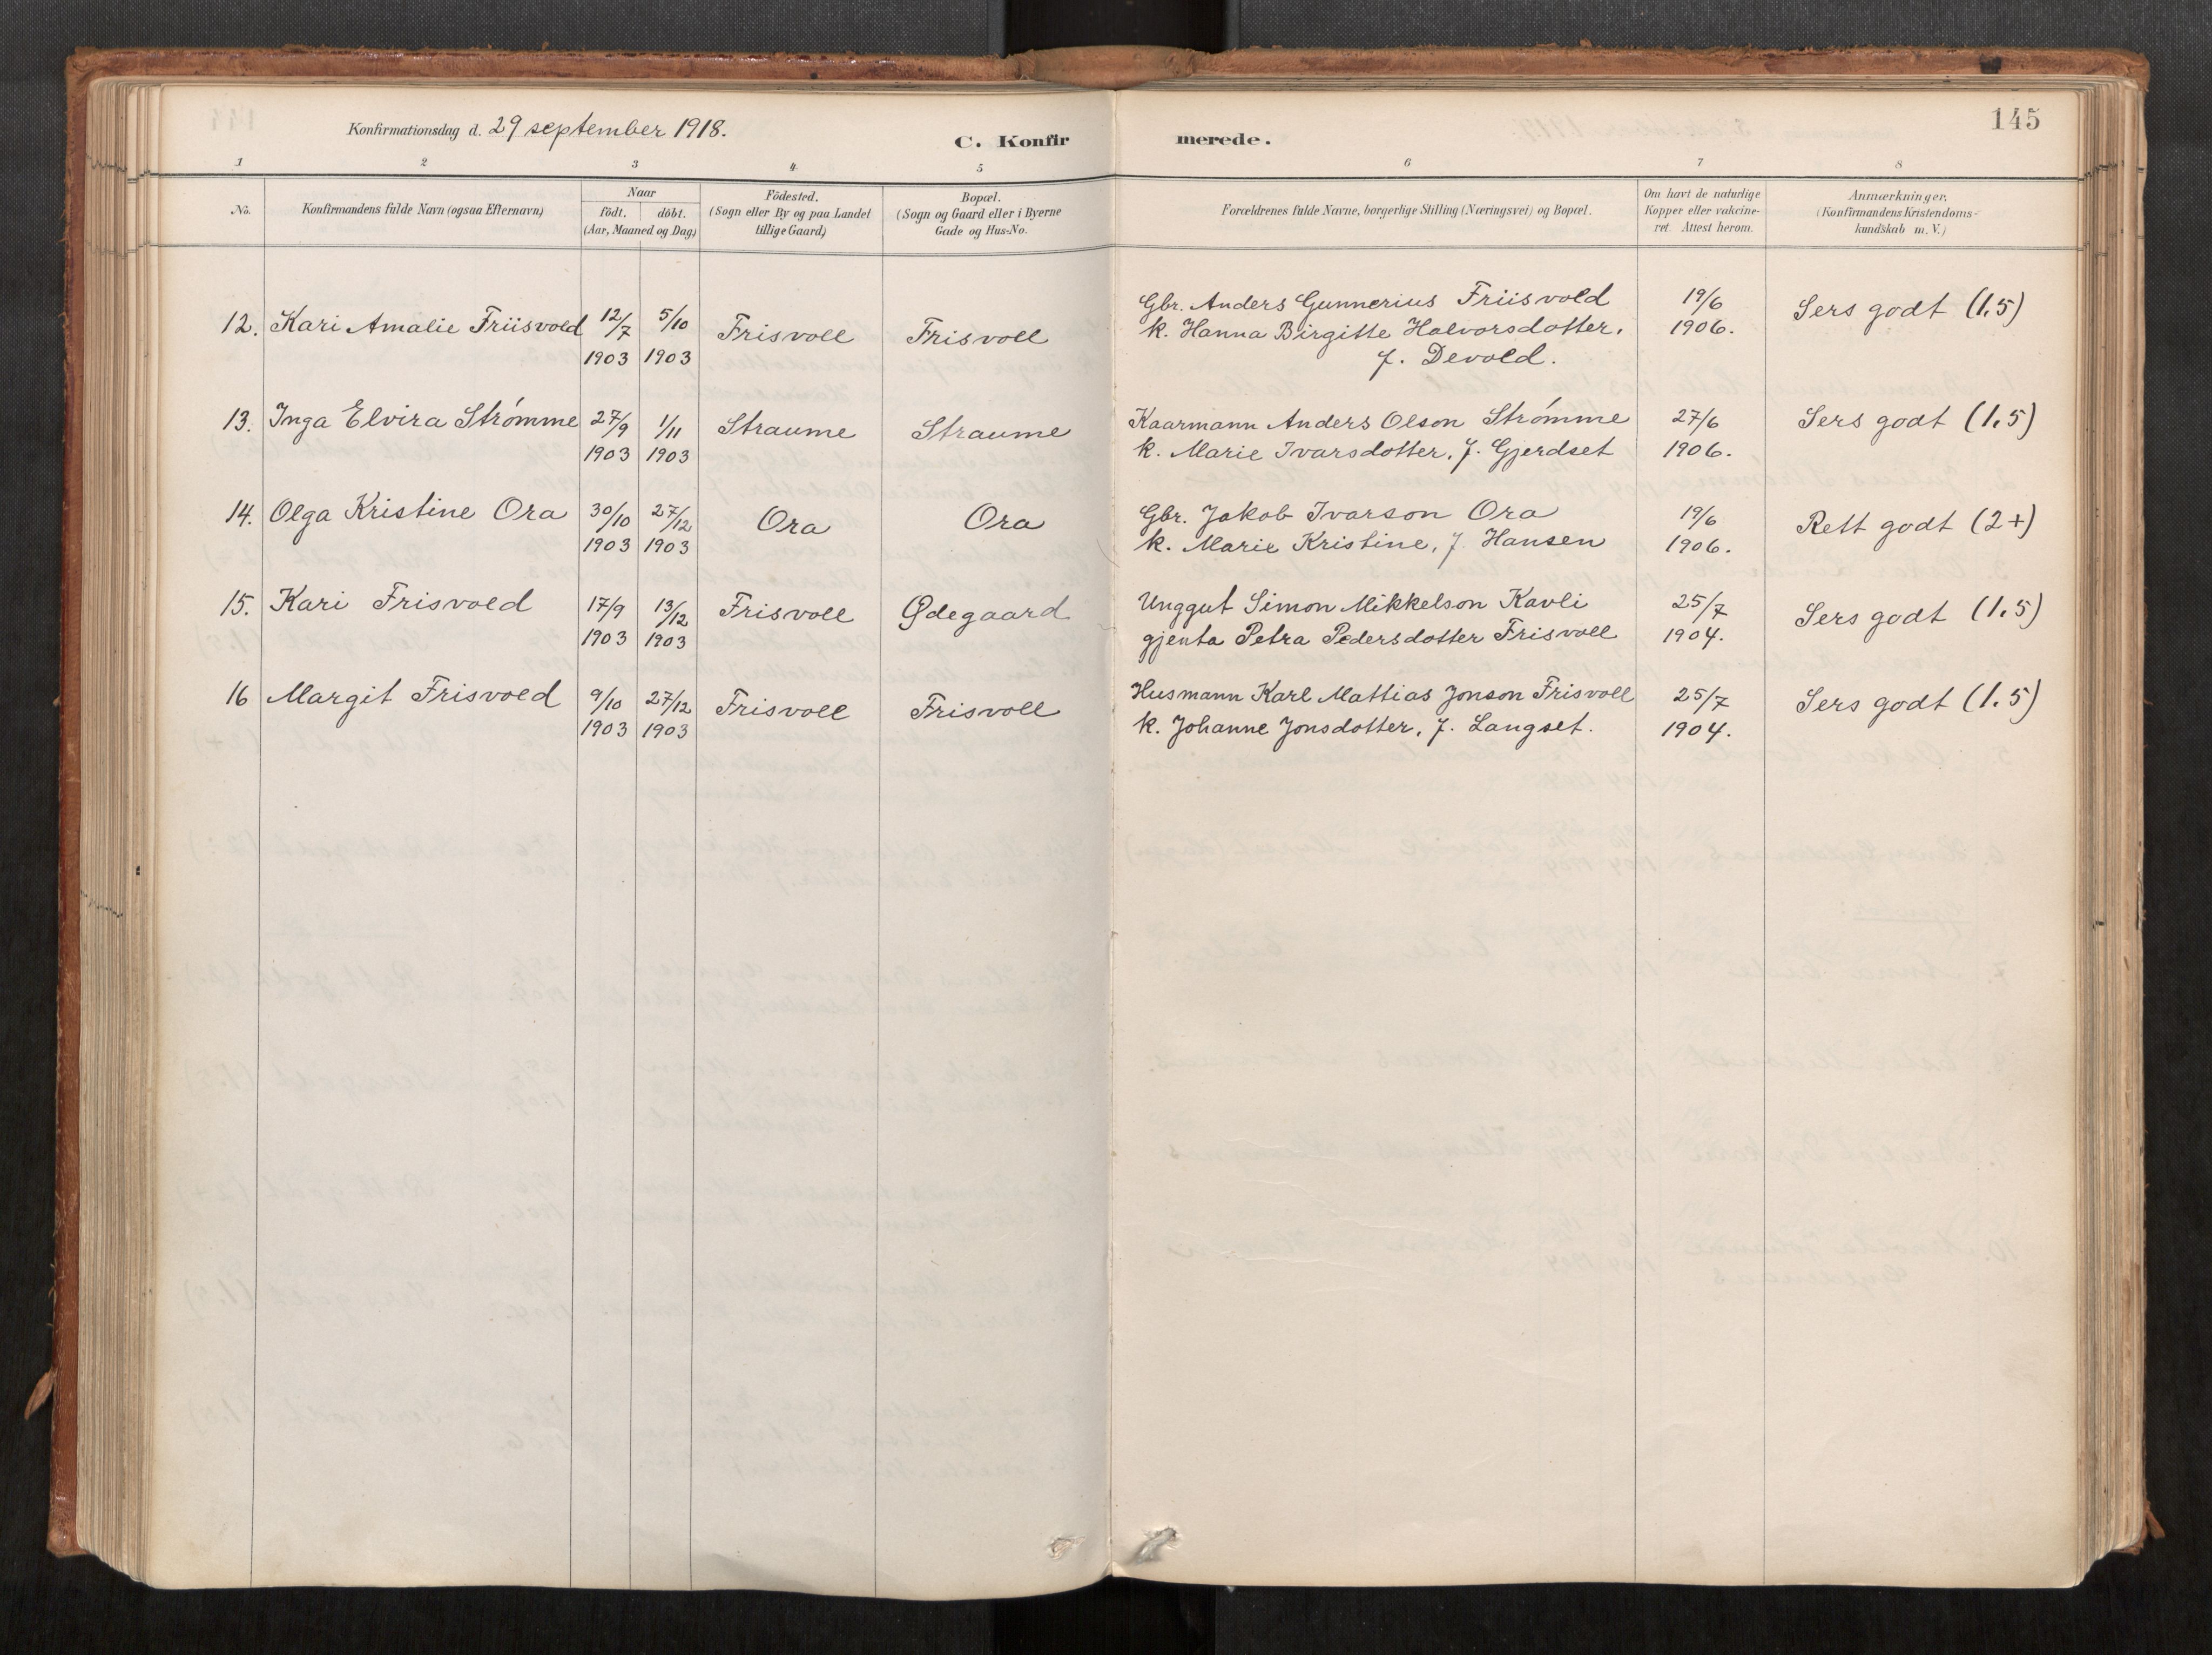 145
Konfirmationsdag d. 29 september 1918.
C. Konfirmerede.
1 2 3 4 5 6 7 8
No.
Konfirmandens fulde Navn (ogsaa Efternavn)
Naar
födt. döbt.
(Aar, Maaned og Dag)
Födested.
(Sogn eller By og paa Landet
tillige Gaard)
Bopæl.
(Sogn og Gaard eller i Byerne
Gade og Hus-No.
Forældrenes fulde Navne, borgerlige Stilling (Næringsvei) og Bopæl.
Om havt de naturlige
Kopper eller vakcine-
ret. Attest herom.
Anmærkninger.
(Konfirmandens Kristendoms-
kundskab m. V.)
12. Kari Amalie Friisvold 12/7 1903 5/10 1903 Frisvoll Frisvoll
Gbr. Anders Gunnerius Friisvold
k. Hanna Birgitte Halvorsdotter,
f. Devold.
19/6 1906. Sers godt (1,5)
13. Inga Elvira Strømme 27/9 1903 1/11 1903 Straume Straume
Kaarmann Anders Olson Strømme
k. Marie Ivarsdotter, f. Gjerdset
27/6 1906. Sers godt (1,5)
14. Olga Kristine Ora 30/10 1903 27/12 1903 Ora Ora
Gbr. Jakob Ivarson Ora
k. Marie Kristine, f. Hansen
19/6 1906. Rett godt (2+)
15. Kari Frisvold 17/9 1903 13/12 1903 Frisvoll Ødegaard
Unggut Simon Mikkelson Kavli
gjenta Petra Pedersdotter Frisvoll
25/7 1904. Sers godt (1.5)
16 Margit Frisvold 9/10 1903 27/12 1903 Frisvoll Frisvoll
Husmann Karl Mattias Jonson Frisvoll
k. Johanne Jonsdotter, f. Langset.
25/7 1904. Sers godt (1.5)